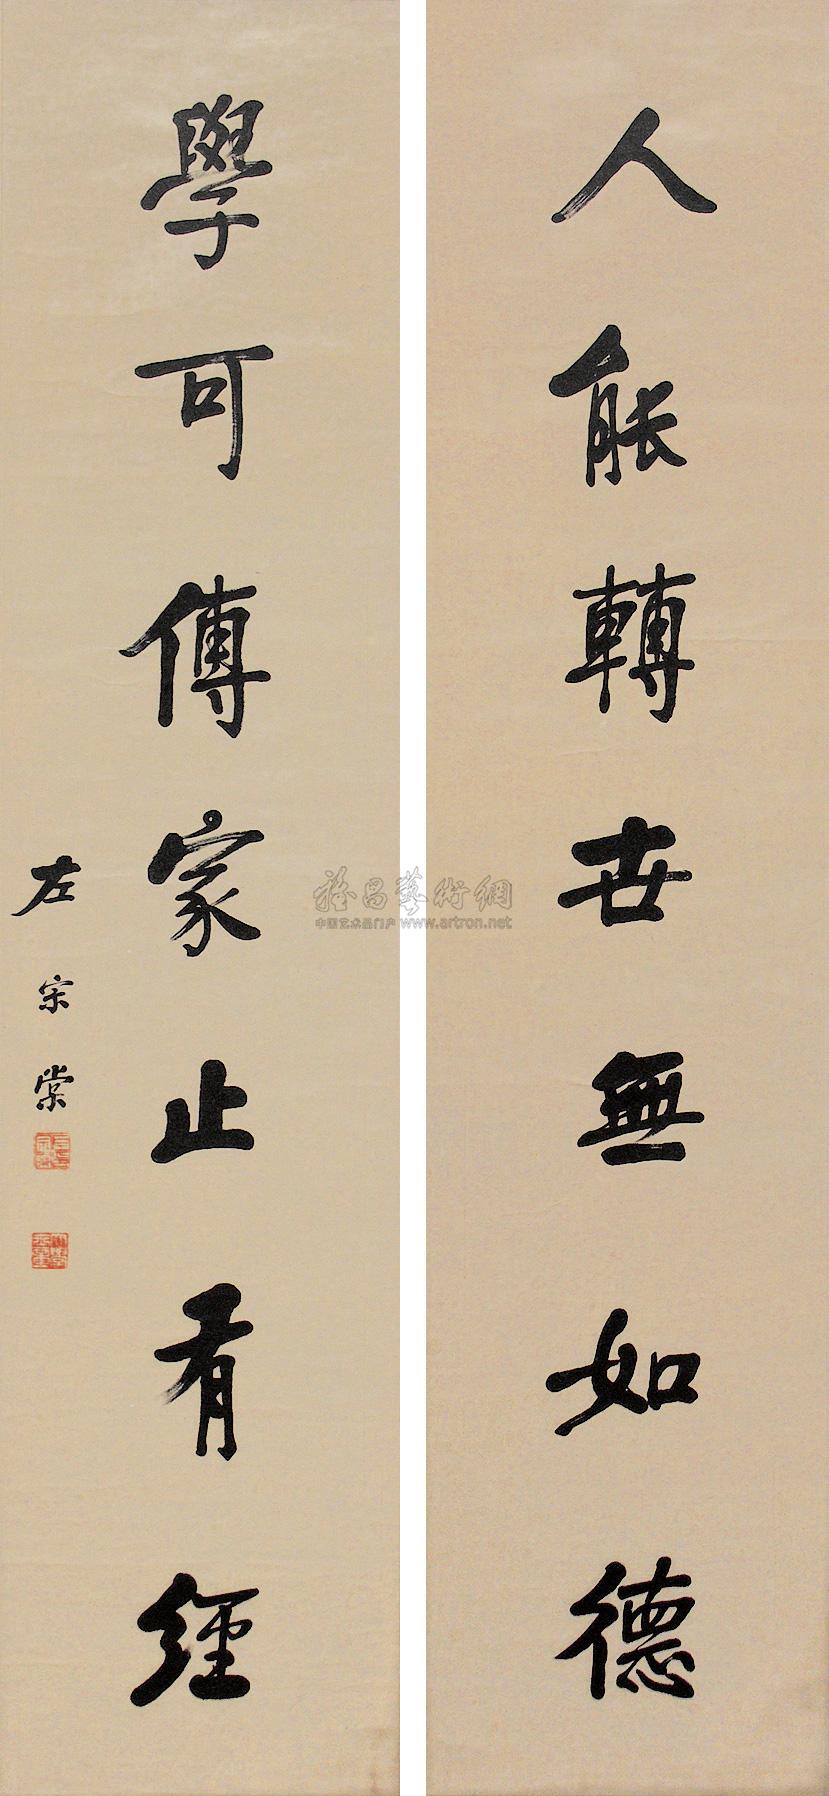 人能轉世無如德
學可傳家止有經
左宗棠
雅昌藝術網
中国艺术品门户 www.artron.net